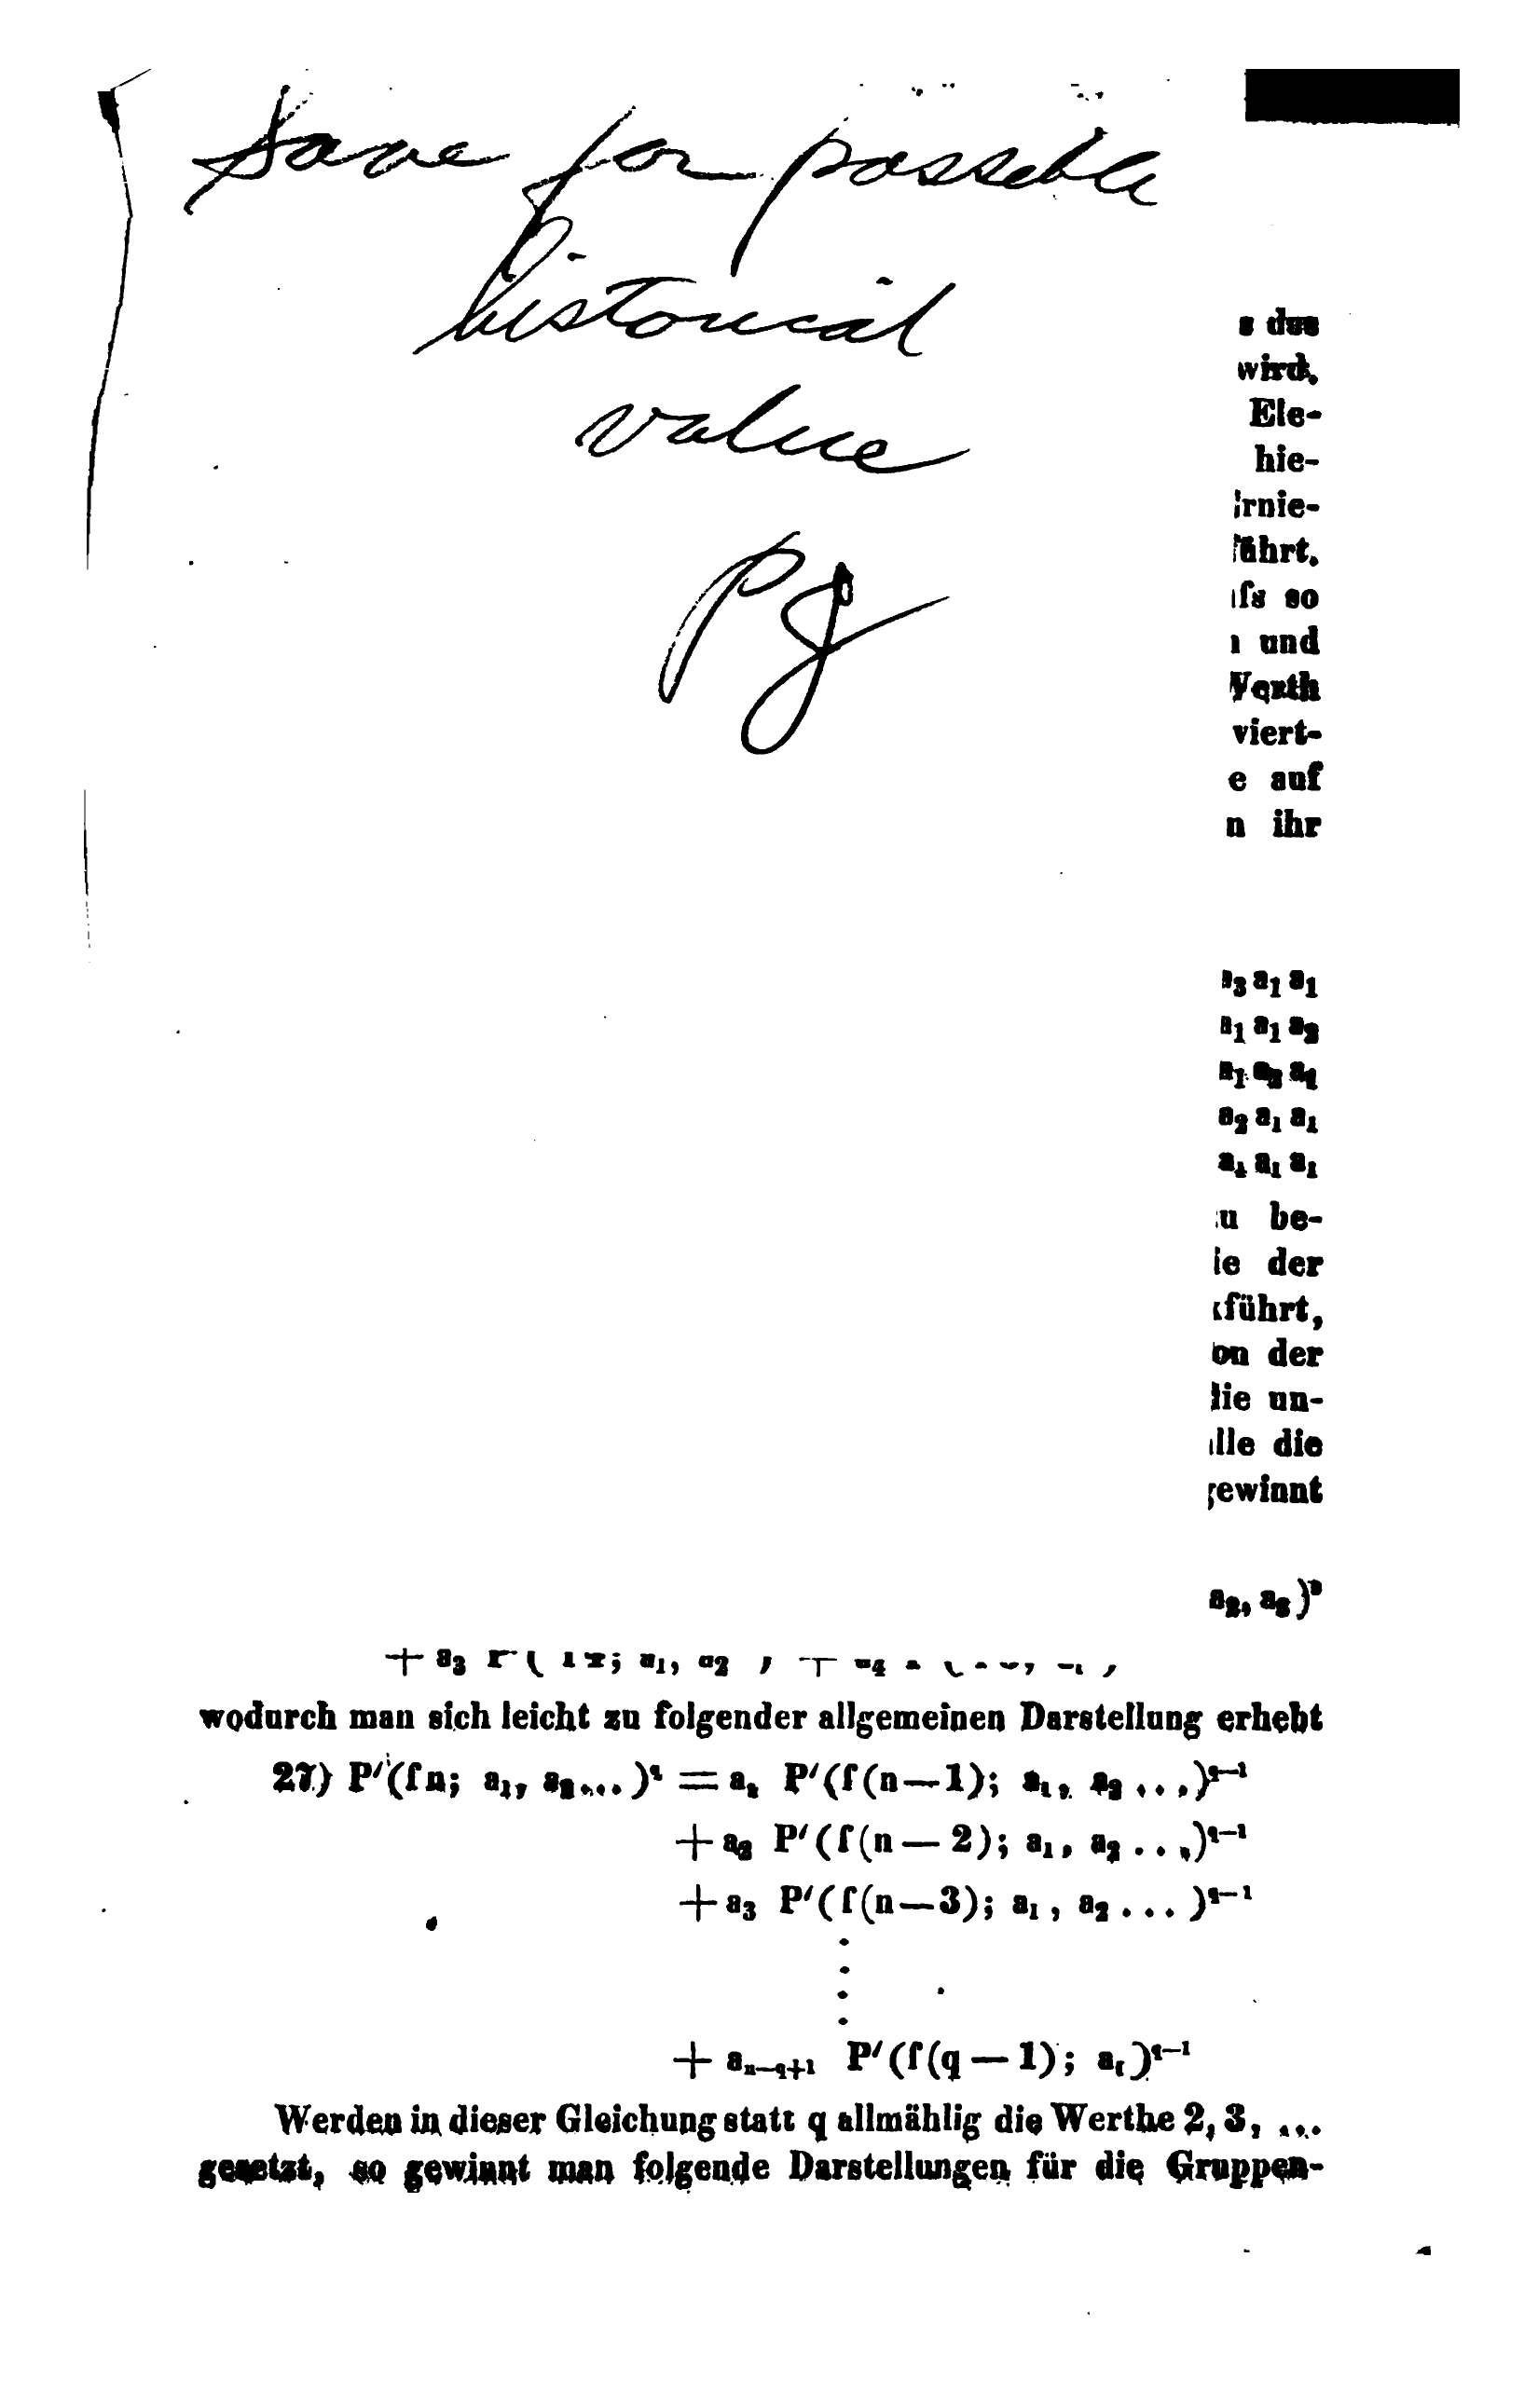 Save for possible
historical
value
PG
das
wird.
Ele-
hie-
rnie-
ührt.
ſs so
und
Werth
viert-
e auf
n ihr
a₃ a₁ a₁
a₁ a₁ a₂
a₁ a₂ a₁
a₂ a₁ a₁
a₁ a₁ a₁
u be-
ie der
führt,
on der
die un-
lle die
gewinnt
a₂, a₃)³
+ a₃
wodurch man sich leicht zu folgender allgemeinen Darstellung erhebt
27) P′(ſn; a₁, a₂...)^q = a₁ P′(ſ(n—1); a₁, a₂...)^q—1
+ a₂ P′(ſ(n — 2); a₁, a₂...)^q—1
+ a₃ P′(ſ(n—3); a₁, a₂...)^q—1
+ aₙ₋q₊₁ P′(ſ(q — 1); a₁)^q—1
Werden in dieser Gleichung statt q allmählig die Werthe 2, 3, ...
gesetzt, so gewinnt man folgende Darstellungen für die Gruppen-